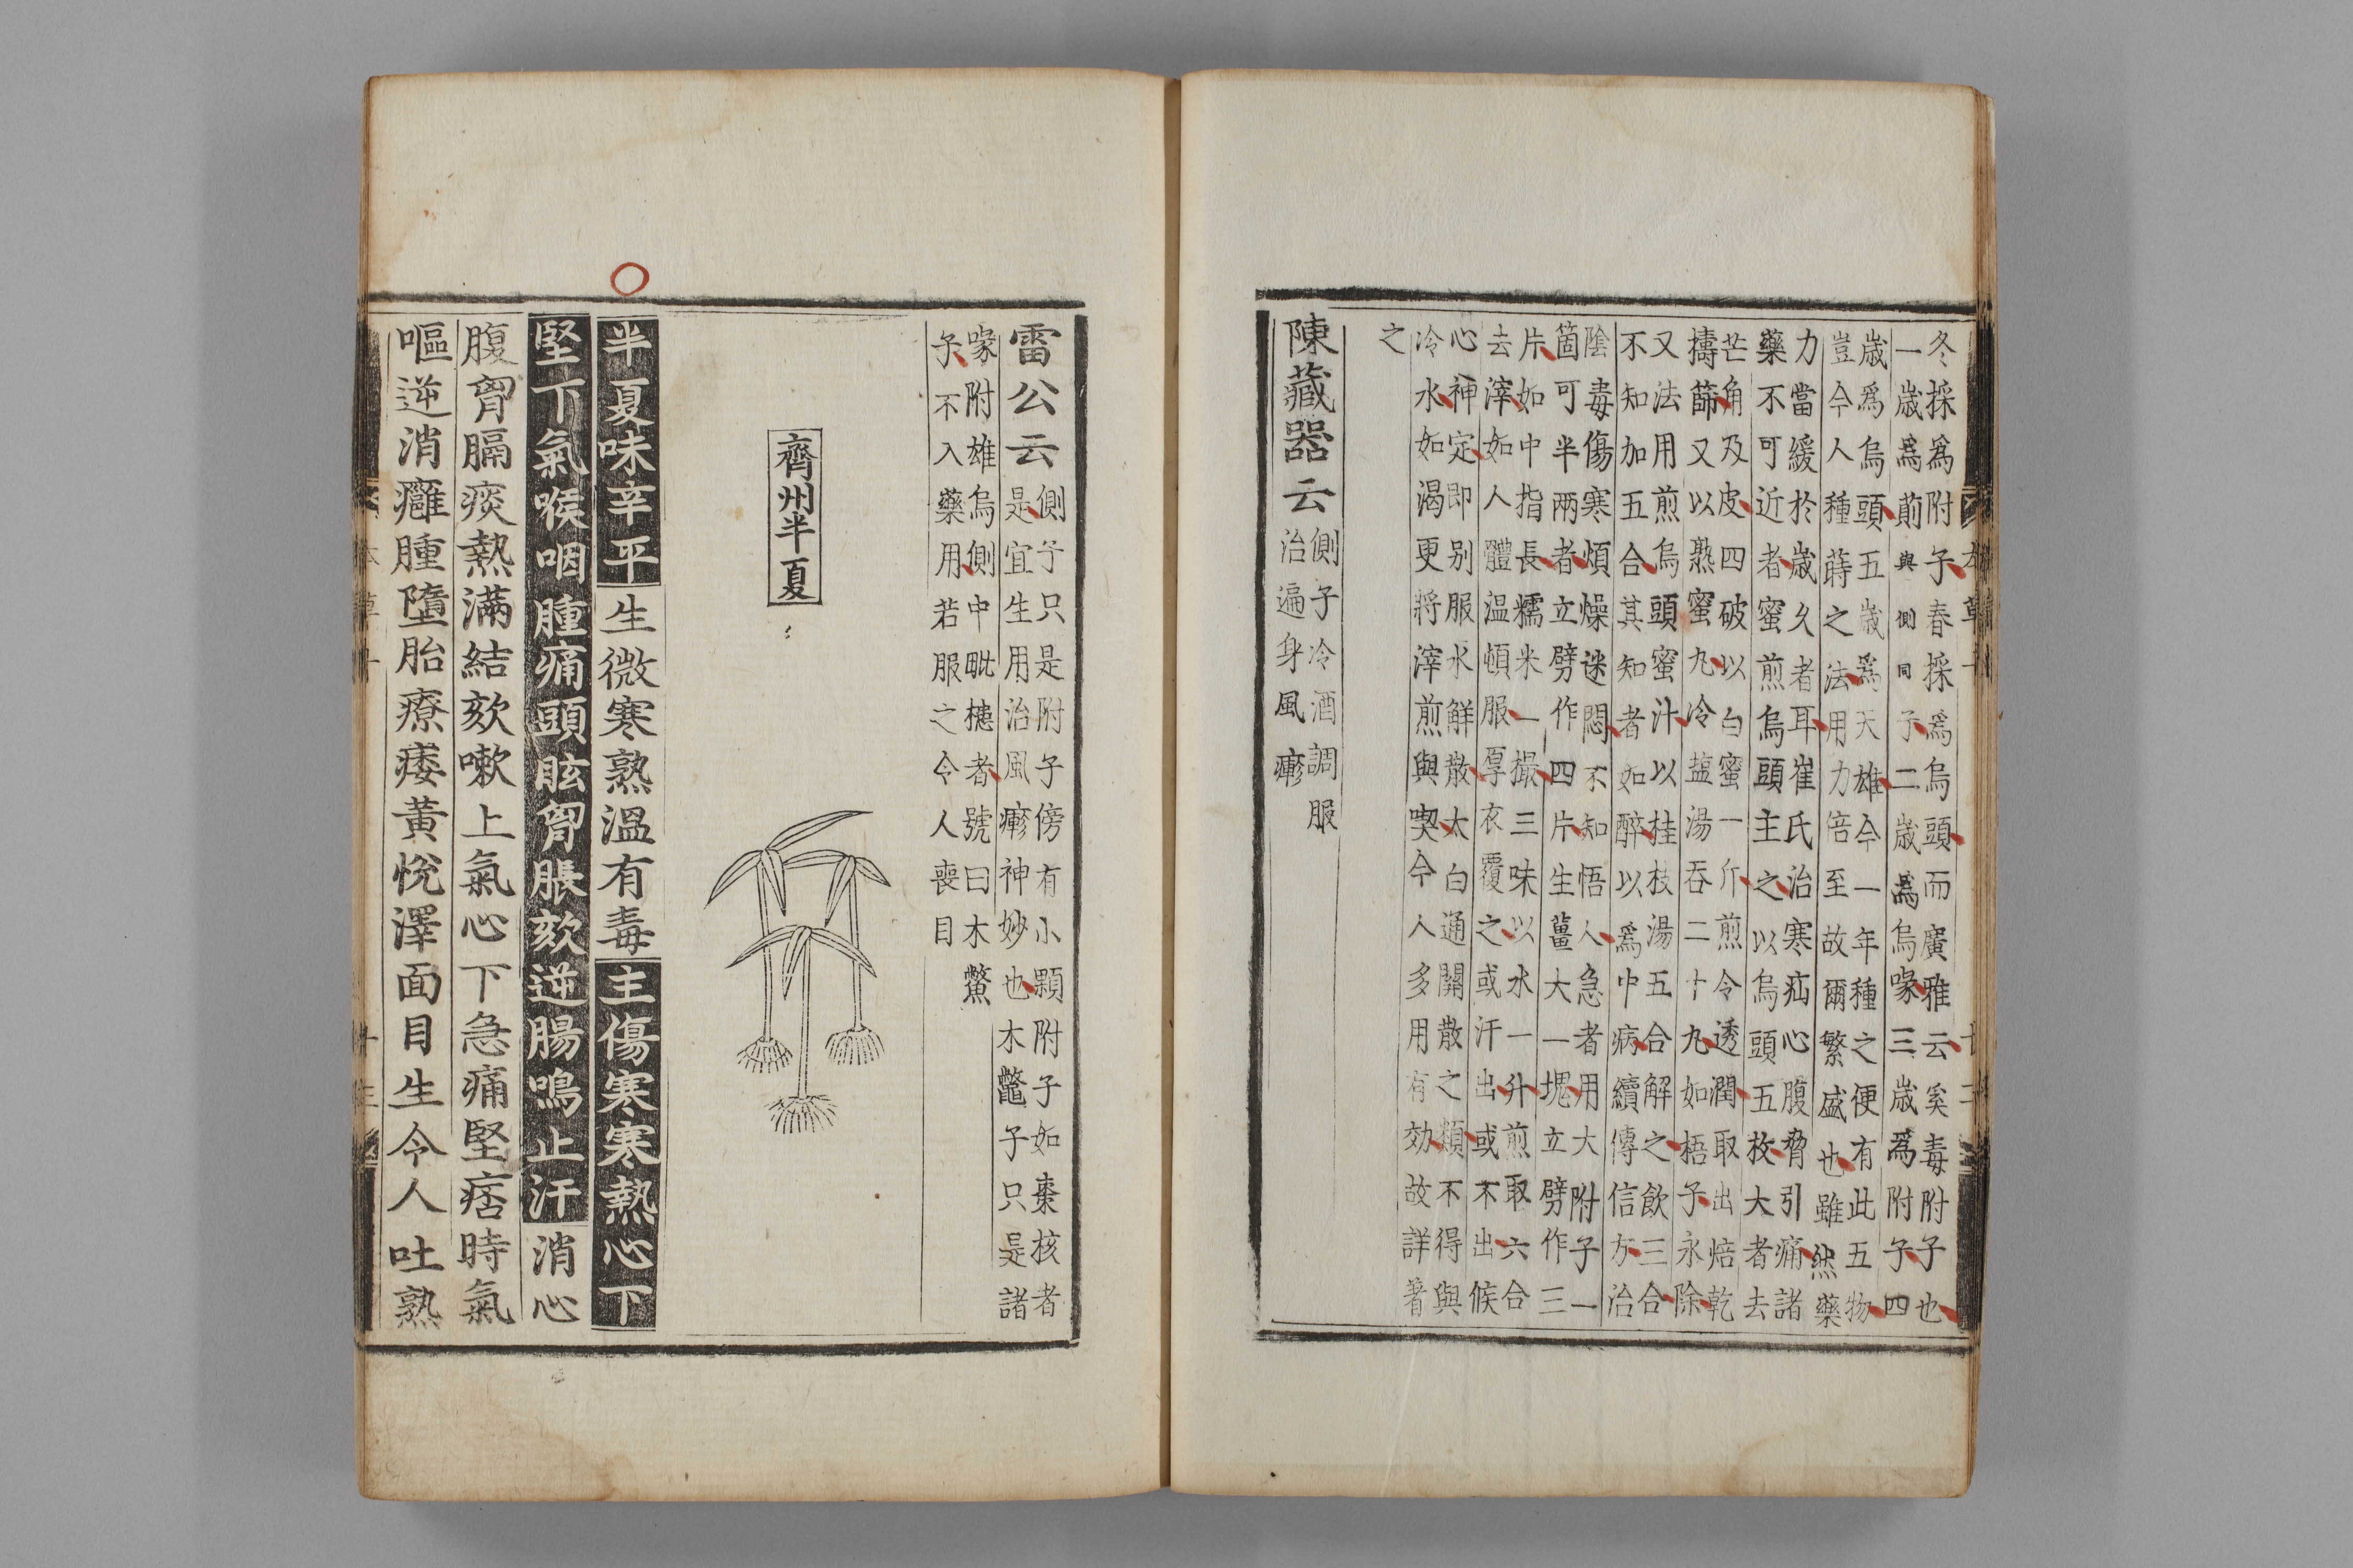 冬採爲附子春採爲烏頭而廣雅云奚毒附子也
一歲爲萴與側同子二歲爲烏喙三歲爲附子四
歲爲烏頭五歲爲天雄今一年種之便有此五物
豈今人種蒔之法用力倍至故爾繁盛也雖然藥
力當緩於歲久者耳崔氏治寒疝心腹脅引痛諸
藥不可近者蜜煎烏頭主之以烏頭五枚大者去
芒角及皮四破以白蜜一斤煎令透潤取出焙乾
擣篩又以熟蜜丸冷盐湯吞二十丸如梧子永除
又法用煎烏頭蜜汁以桂枝湯五合解之飲三合
不知加五合其知者如醉以爲中病續傳信方治
陰毒傷寒煩燥迷悶不知悟人急者用大附子一
箇可半兩者立劈作四片生薑大一塊立劈作三
片如中指長糯米一撮三味以水一升煎取六合
去滓如人體温頓服厚衣覆之或汗出或不出候
心神定即别服水解散太白通關散之類不得與
冷水如渴更將滓煎與喫今人多用有効故詳著
之
陳藏器云
側子冷酒調服
治遍身風瘮
雷公云
側子只是附子傍有小顆附子如棗核者
是宜生用治風瘮神妙也木鼈子只是諸
喙附雄烏側中毗槵者號曰木鱉
子不入藥用若服之令人喪目
齊州半夏
半夏味辛平生微寒熟溫有毒主傷寒寒熱心下
堅下氣喉咽腫痛頭眩胷脹欬逆腸鳴止汗消心
腹胷膈痰熱滿結欬嗽上氣心下急痛堅痞時氣
嘔逆消癰腫墮胎療痿黃悅澤面目生令人吐熟